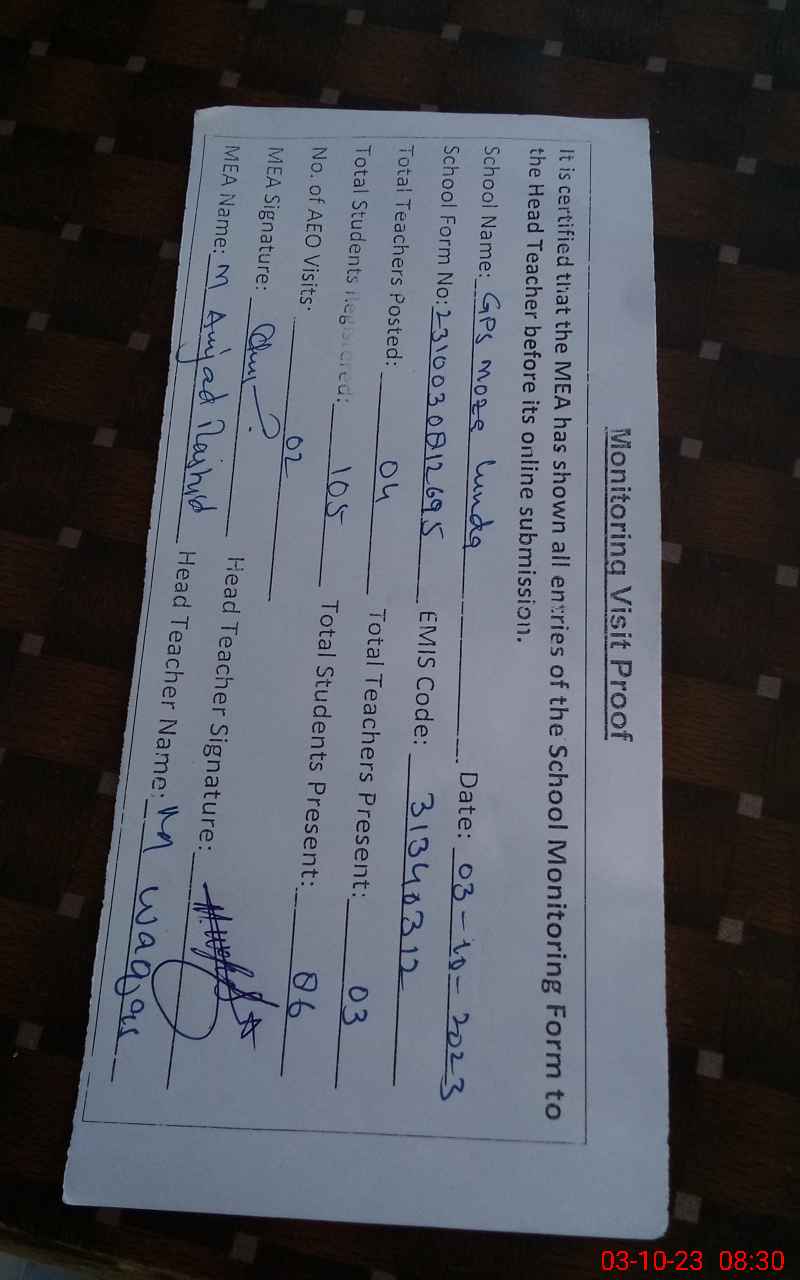 Monitoring Visit Proof
It is certified that the MEA has shown all entries of the School Monitoring Form to
the Head Teacher before its online submission.
School Name: GPS Moza Lunda Date: 03-10-2023
School Form No: EMIS Code: 31340312
Total Teachers Posted: 04 Total Teachers Present: 03
Total Students Registered: 105 Total Students Present: 86
No. of AEO Visits: 02
MEA Signature: Head Teacher Signature:
MEA Name: M Amjad Rashid Head Teacher Name: M Waqas
03-10-23 08:30